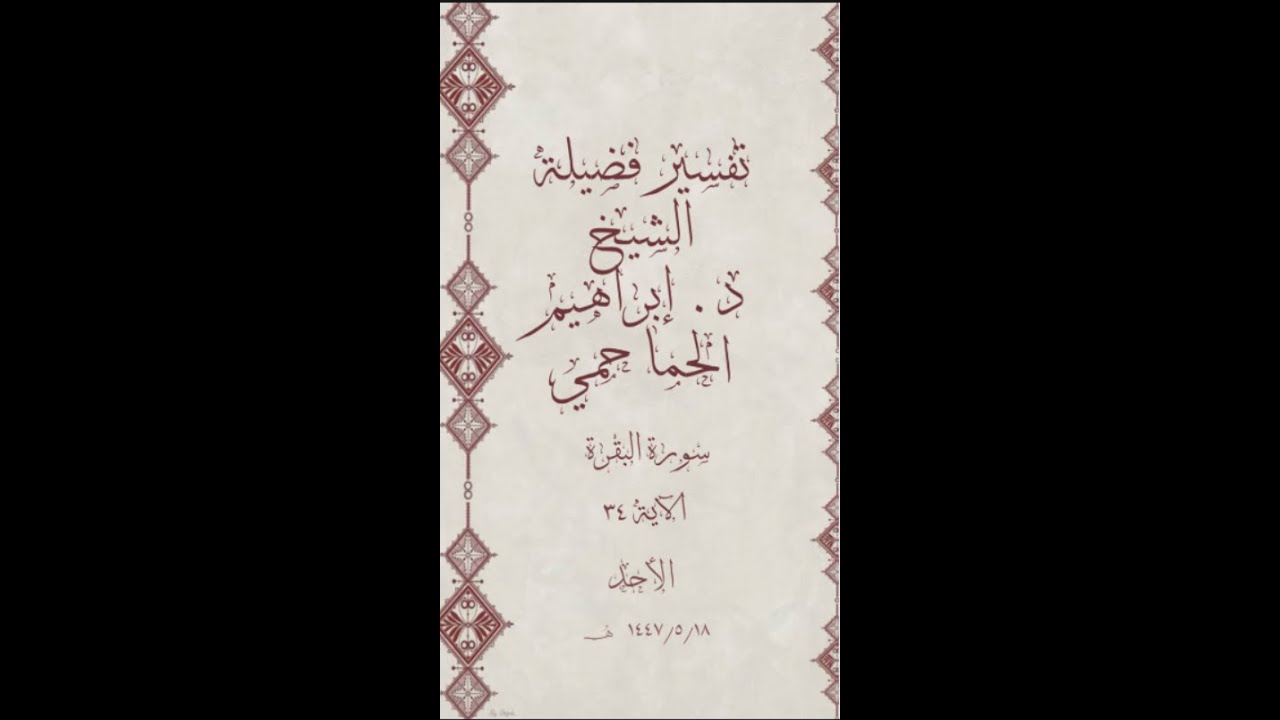 تفسير فضيلة
الشيخ
د. إبراهيم
الحماحمي
سورة البقرة
الآية ٣٤
الأحد
١٤٤٧/٥/١٨ هـ